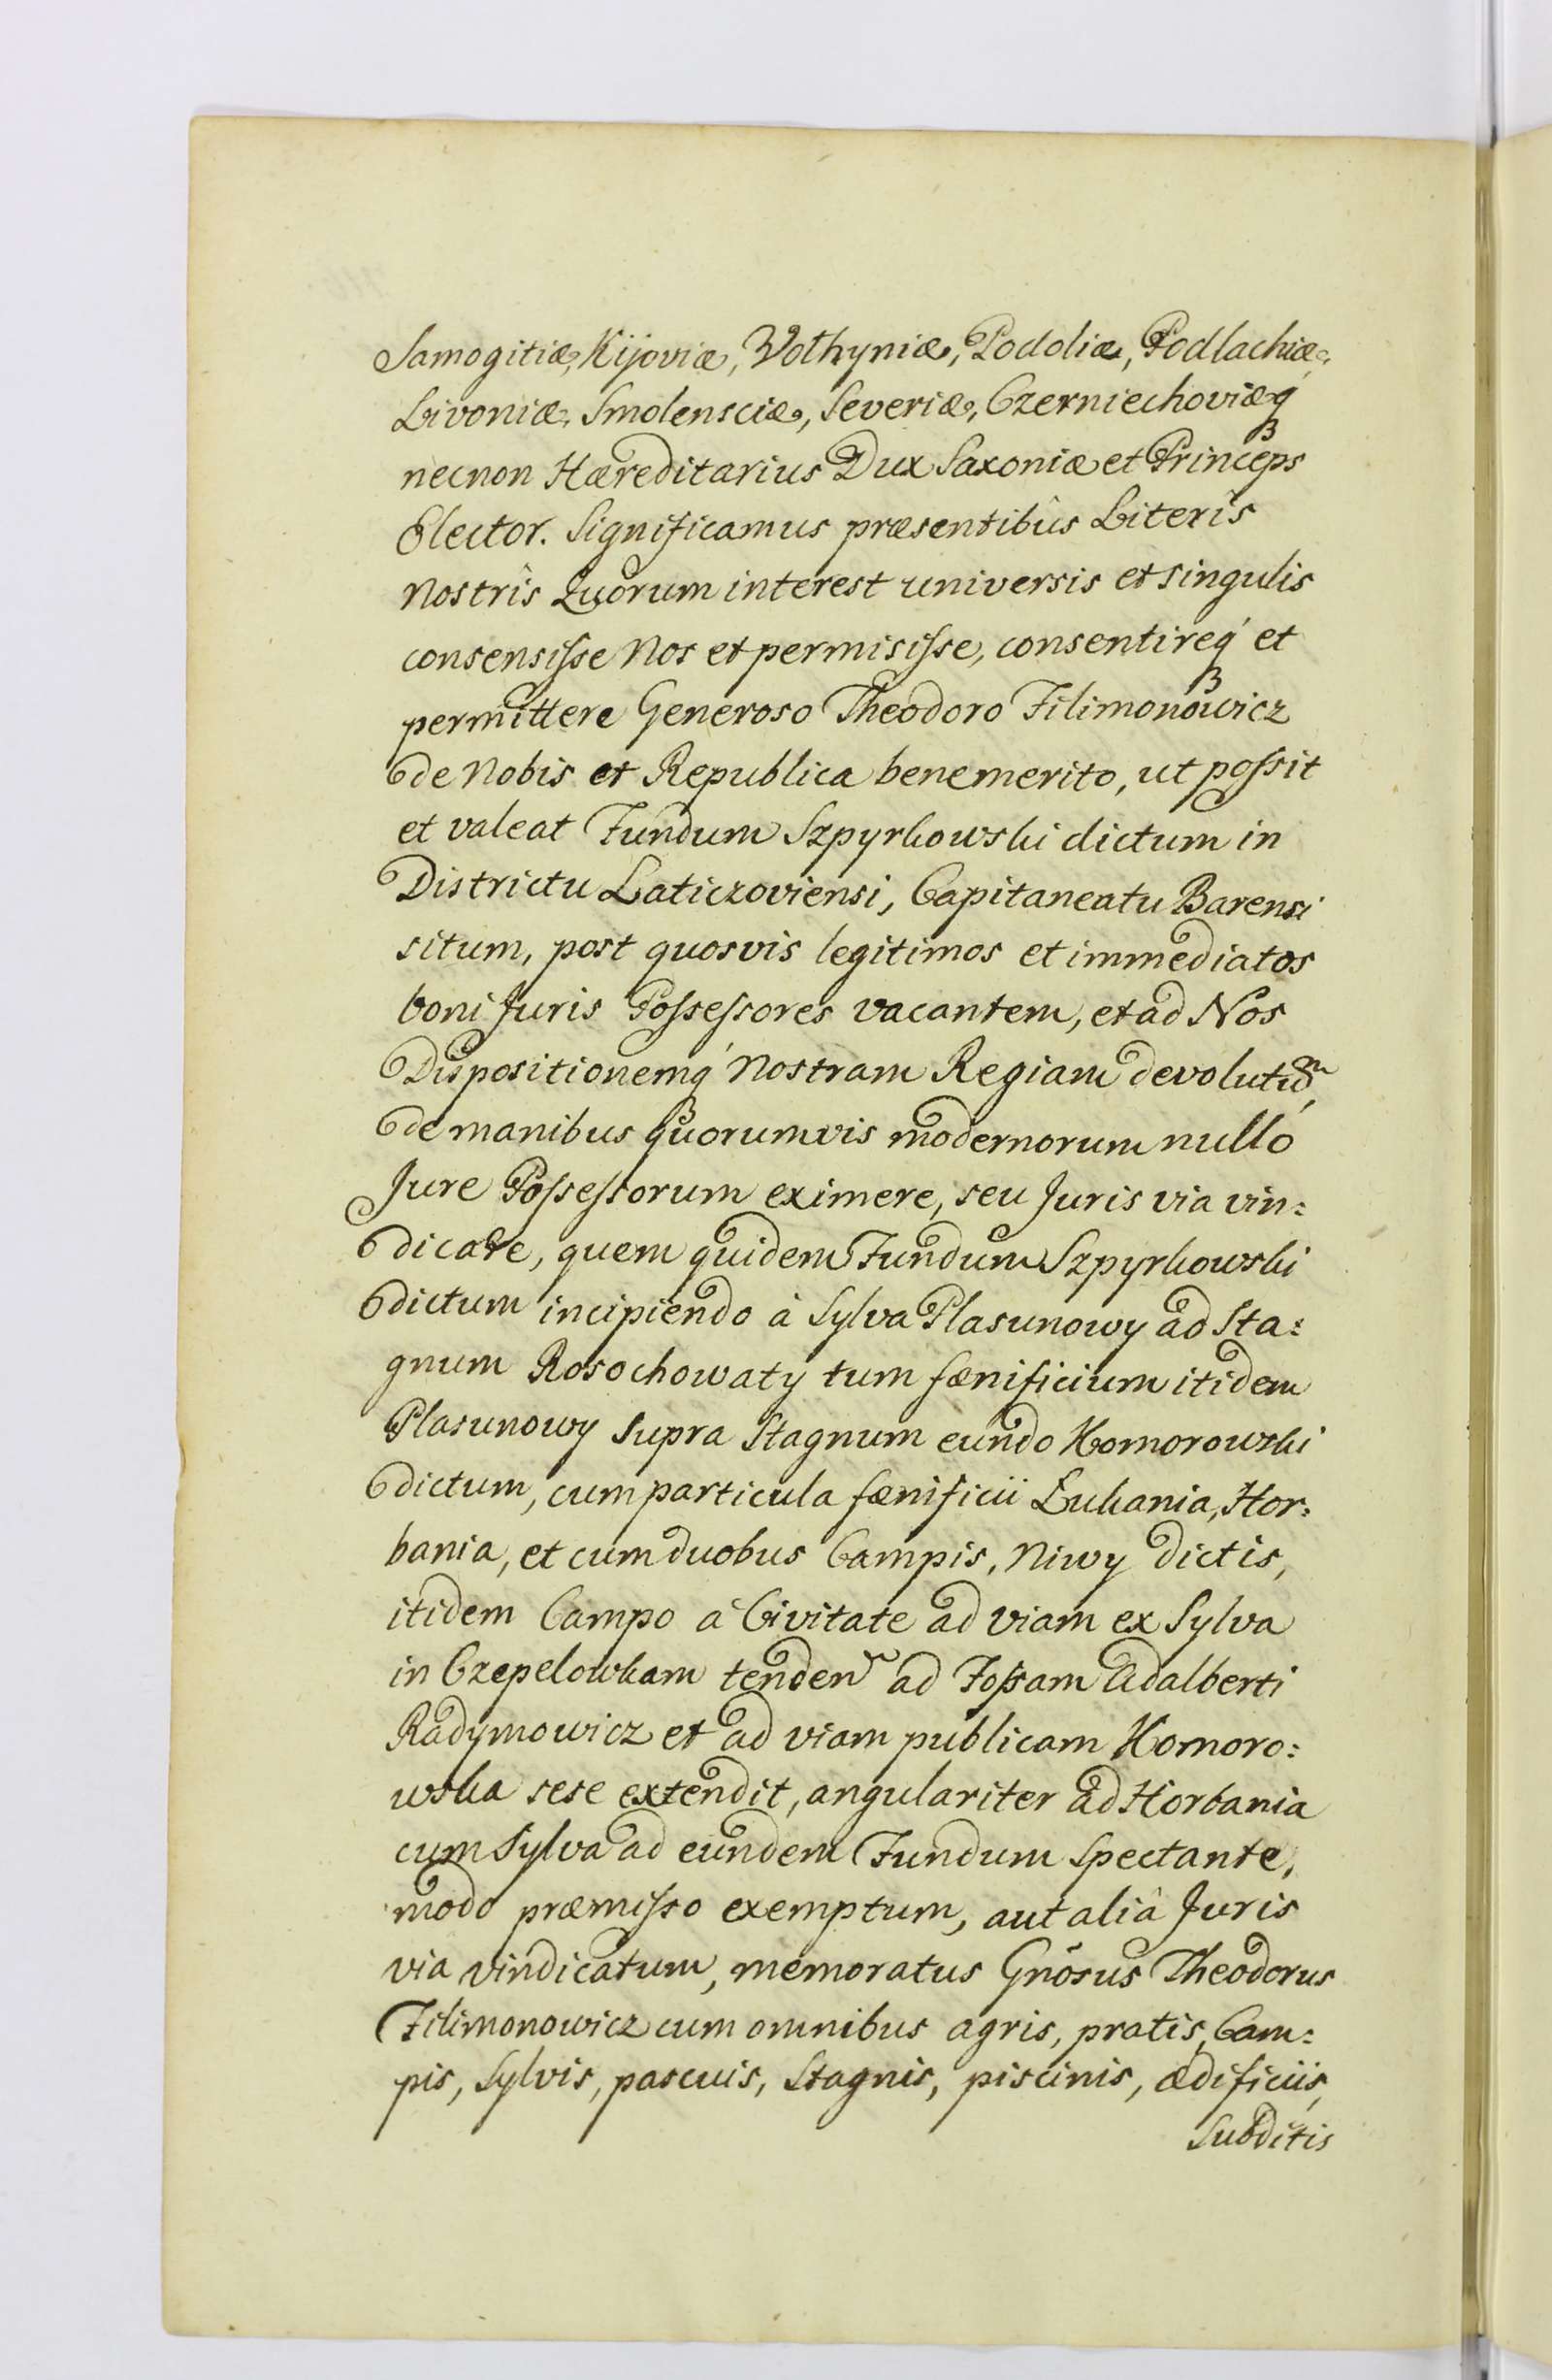 Samogitiæ, Kijoviæ, Volhyniæ, Podoliæ, Podlachiæ,
Livoniæ, Smolensciæ, Severiæ, Czerniechoviæq́
necnon Hæreditarius Dux Saxoniæ et Princeps
Elector. Significamus præsentibùs Literis
Nostris Quorum interest universis et singulis
consensiſse Nos et permisiſse, consentireq́ et
permittere Generoso Theodoro Filimonowicz
de Nobis et Republica benemerito, ut poſsit
et valeat Fundum Szpyrkowski dictum in
Districtu Laticzoviensi, Capitaneatu Barensi
situm, post quosvis legitimos et immediatos
boni Juris Poſseſsores vacantem, et ad Nos
Dispositionemq́ Nostram Regiam devolutũ,
de manibus quorumvis modernorum nullo
Jure Poſseſsorum eximere, seu Juris via vin:
dicare, quem quidem Fundum Szpyrkowski
dictum incipiendo à Sylva Plasunowy ad Sta:
gnum Rosochowaty tum fœnificium itidem
Plasunowy supra Stagnum eundo Komorowski
dictum, cum particula fœnificii Lukania, Hor:
bania, et cum duobus Campis, Niwy dictis,
itidem Campo à Civitate ad viam ex Sylva
in Czepelowkam tendeñ ad Foſsam Adalberti
Radymowicz et ad viam publicam Komoro:
wska sese extendit, angulariter ad Horbania
cum Sylva ad eundem Fundum Spectante,
modo præmiſso exemptum, aut aliâ Juris
via vindicatum, memoratus Gnõsus Theodorus
Filimonowicz cum omnibus agris, pratis, Cam:
pis, Sylvis, pascuis, Stagnis, piscinis, ædificiis,
Subditis